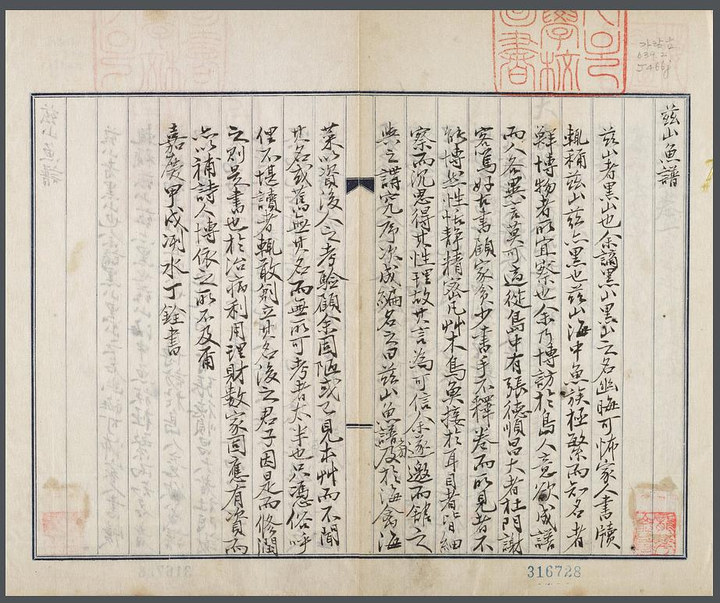 玆山魚譜
玆山者黑山也余謫黑山黑山之名幽晦可怖家人書牘
輒稱玆山玆亦黑也玆山海中魚族極繁而知名者
鮮博物者所宜察也余乃博訪於島人意欲成譜
而人各異言莫可適從島中有張德順昌大者杜門謝
客篤好古書顧家貧少書手不釋卷而所見者不
能博然性恬靜精密凡艸木鳥魚接於耳目者皆細
察而沉思得其性理故其言為可信余遂邀而館之
與之講究序次成編名之曰玆山魚譜旁及於海禽海
菜以資後人之考驗顧余固陋或已見本艸而不聞
其名或舊無其名而無所可考者太半也只憑俗呼
俚不堪讀者輒敢創立其名後之君子因是而修潤
之則是書也於治病利用理財數家固應有資而
亦以補詩人博依之所不及爾
嘉慶甲戌洌水丁銓書
316728